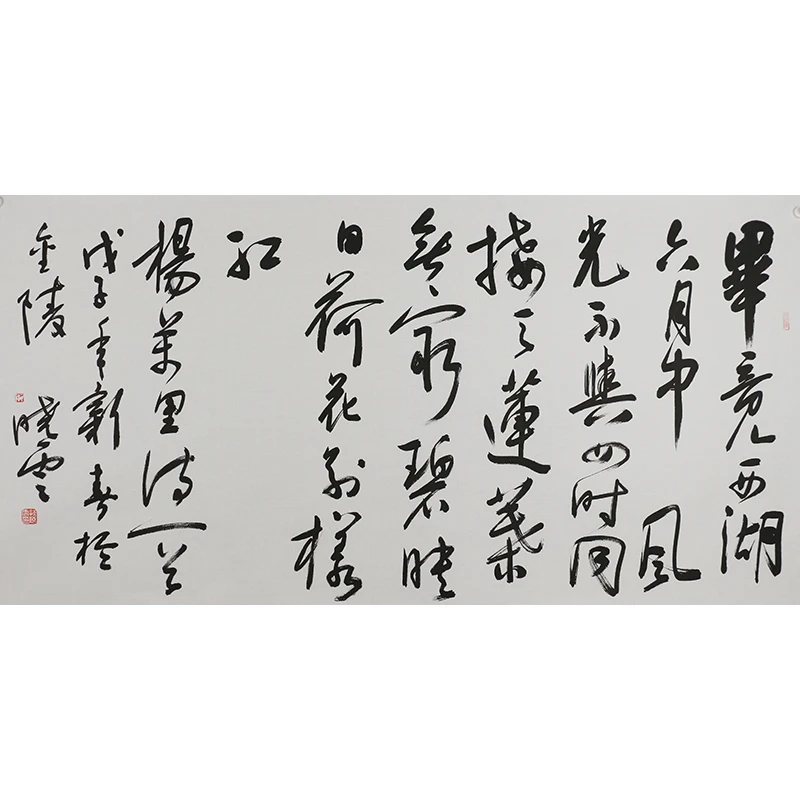 畢竟西湖
六月中風
光不與四时同
接天蓮葉
無窮碧映
日荷花别樣
紅
楊萬里诗一首
戊子年新春於
金陵 晓雲